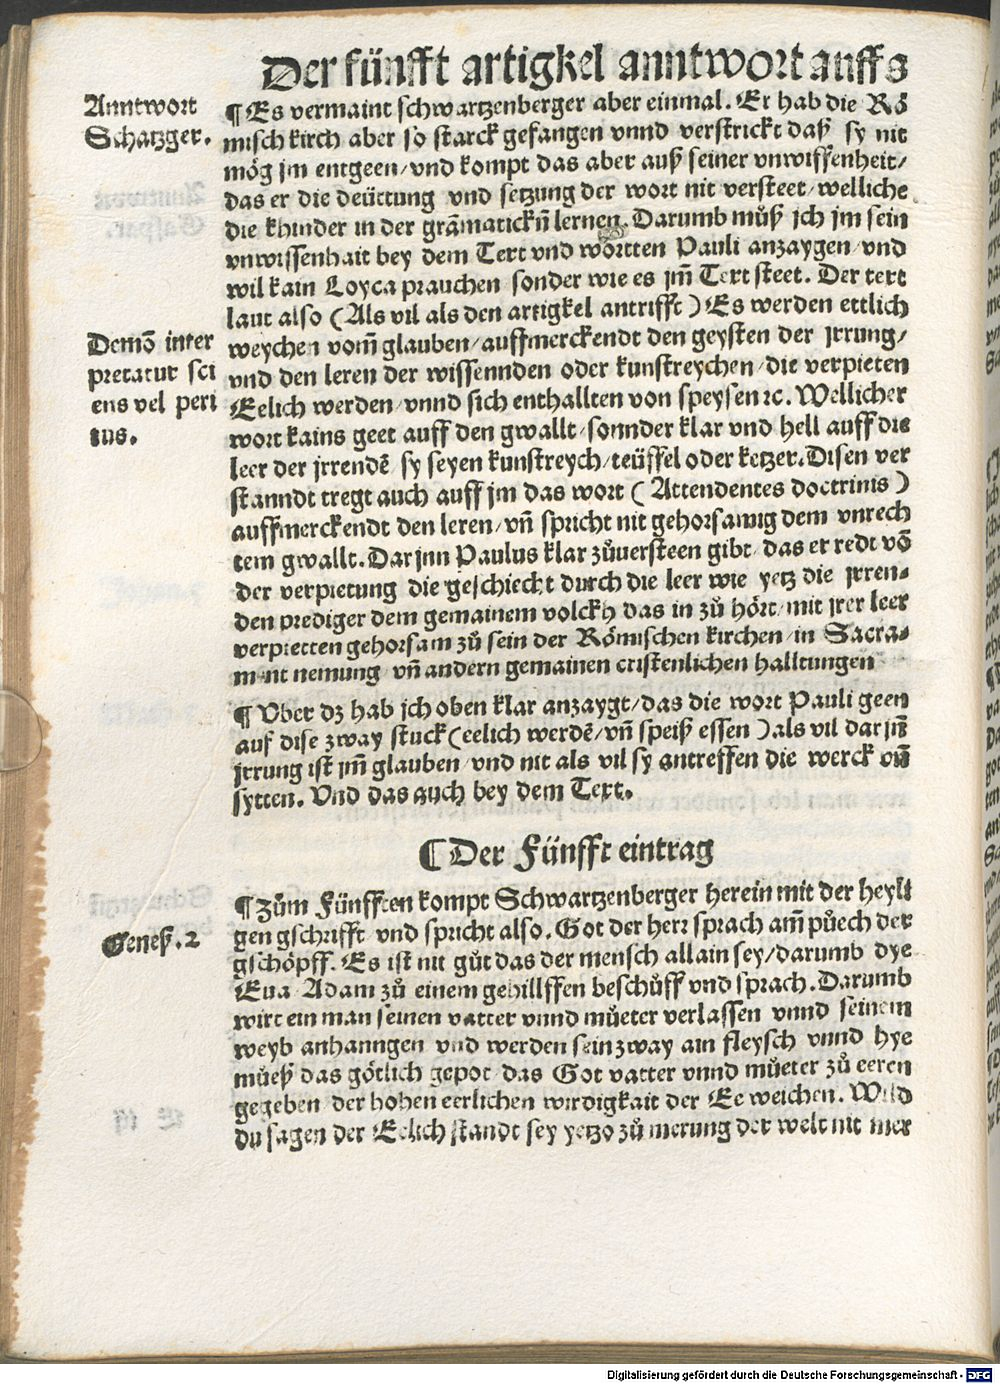 Der fünfft artigkel anntwort auffs
Anntwort
Schatzger.
¶ Es vermaint schwartzenberger aber einmal. Er hab die Rö
misch kirch aber so starck gefangen vnnd verstrickt daß sy nit
mög jm entgeen/vnd kompt das aber auß seiner vnwissenheit/
das er die deüttung vnd setzung der wort nit versteet/welliche
die khinder in der grāmatickn̄ lernen. Darumb můß jch jm sein
vnwissenhait bey dem Text vnd wortten Pauli anzaygen/vnd
wil kain Loyca prauchen sonder wie es jm̄ Text steet. Der text
laut also (Als vil als den artigkel antrifft) Es werden ettlich
Demō inter
pretatur sci
ens vel peri
tus.
weychen vom̄ glauben/auffmerckendt den geysten der jrrung/
vnd den leren der wissennden oder kunstreychen/die verpieten
Eelich werden/vnnd sich enthallten von speysen ꝛc. Wellicher
wort kains geet auff den gwallt/sonnder klar vnd hell auff die
leer der jrrendē sy seyen kunstreych/teüffel oder ketzer. Disen ver
stanndt tregt auch auff jm das wort (Attendentes doctrinis)
auffmerckendt den leren/vn̄ spricht nit gehorsamig dem vnrech
tem gwallt. Dar jnn Paulus klar zůuersteen gibt/das er redt vō
der verpietung die geschiecht durch die leer wie yetz die jrren⸗
den prediger dem gemainem volckh das in zů hört/mit jrer leer
verpietten gehorsam zů sein der Römischen kirchen/in Sacra⸗
ment nemung vn̄ andern gemainen cristenlichen halltungen
¶ Vber dz hab jch oben klar anzaygt/das die wort Pauli geen
auf dise zway stuck (eelich werdē/vn̄ speiß essen) als vil dar jn̄
jrrung ist jm̄ glauben/vnd nit als vil sy antreffen die werck vn̄
sytten. Vnd das auch bey dem Text.
¶ Der Fünfft eintrag
¶ Zům Fünfften kompt Schwartzenberger herein mit der heyli
Geneß. 2
gen gschrifft vnd spricht also. Got der herr sprach am̄ půech der
gschöpff. Es ist nit gůt das der mensch allain sey/darumb dye
Eua Adam zů einem gehillffen beschůff vnd sprach. Darumb
wirt ein man seinen vatter vnnd můeter verlassen vnnd seinem
weyb anhanngen vnd werden sein zway ain fleysch vnnd hye
můeß das götlich gepot das Got vatter vnnd můeter zů eeren
gegeben der hohen eerlichen wirdigkait der Ee weichen. Wild
du sagen der Eelich standt sey yetzo zů merung der welt nit mer
Digitalisierung gefördert durch die Deutsche Forschungsgemeinschaft - DFG